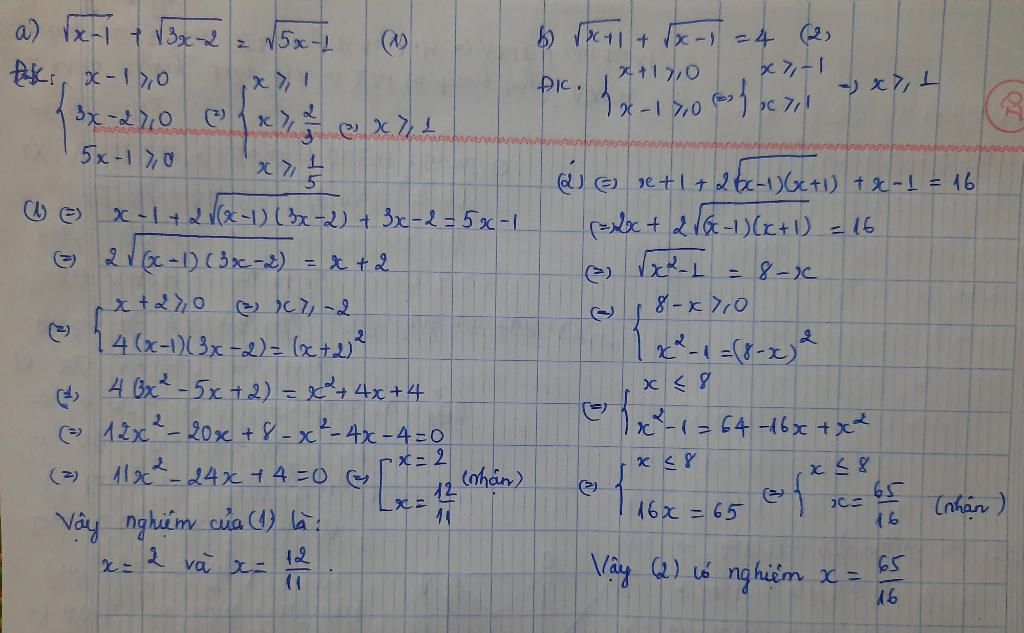 a) √(x-1) + √(3x-2) = √(5x-1) (1)
ĐK: { x-1 ≥ 0
3x-2 ≥ 0
5x-1 ≥ 0
(=) { x ≥ 1
x ≥ 2/3
x ≥ 1/5
(=) x ≥ 1
(1) (=) x-1 + 2√((x-1)(3x-2)) + 3x-2 = 5x-1
(=) 2√((x-1)(3x-2)) = x+2
(=) { x+2 ≥ 0 (=) x ≥ -2
4(x-1)(3x-2) = (x+2)²
(1) 4(3x² - 5x + 2) = x² + 4x + 4
(=) 12x² - 20x + 8 - x² - 4x - 4 = 0
(=) 11x² - 24x + 4 = 0 (=) [ x = 2
x = 12/11
(nhận)
Vậy nghiệm của (1) là:
x = 2 và x = 12/11.
b) √(x+1) + √(x-1) = 4 (2)
ĐK. { x+1 ≥ 0
x-1 ≥ 0
(=) { x ≥ -1
x ≥ 1
→ x ≥ 1
(2) (=) x+1 + 2√((x-1)(x+1)) + x-1 = 16
(=) 2x + 2√((x-1)(x+1)) = 16
(=) √(x²-1) = 8-x
(=) { 8-x ≥ 0
x²-1 = (8-x)²
(=) { x ≤ 8
x²-1 = 64 - 16x + x²
(=) { x ≤ 8
16x = 65
(=) { x ≤ 8
x = 65/16
(nhận)
Vậy (2) có nghiệm x = 65/16